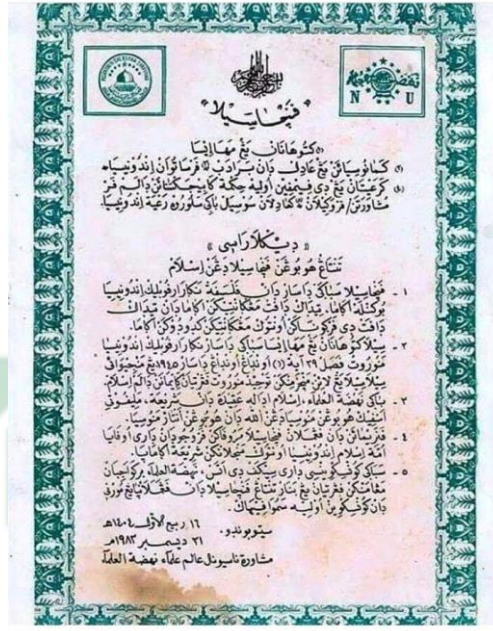 نهضة العلماء
N U
" فنچاسيلا "
(١) كتوهانان يڠ مها إيسا
(٢) كمانوسيائن يڠ عاديل دان برادب (٣) فرساتوان إندونيسيا
(٤) كرعيتان يڠ دي فيمفين أوليه حكمة كبيجكسانأن دالم فر
مشاورتن/ فرواكيلن (٥) كعاديلن سوسيال باڬي سلوروه رعية إندونيسيا.
« ديكلاراسي »
تنتاڠ هوبوڠن فنچاسيلا دڠن إسلام
١ - فنچاسيلا سباڬي داسار دان فلسفة نڬارا رفوبليك إندونيسيا
بوكنله أڬاما، تيدق دافت مڠڬنتيكن أڬاما دان تيدق
دافت دي فرڬوناكن أونتوق مڠڬنتيكن كدودوكن أڬاما.
٢ - سيلا كتوهانان يڠ مها إيسا سباڬي داسار نڬارا رفوبليك إندونيسيا
منوروت فصل ٢٩ أية (١) أوندڠ أوندڠ داسار ١٩٤٥ يڠ منجيوائي
سيلا سيلا يڠ لاين منچرمينكن توحيد منوروت فڠرتيان كإيمانن دالم إسلام.
٣ - باڬي نهضة العلماء، إسلام اداله عقيدة دان شريعة، مليفوتي
أسفيك هوبوڠن مأنوسيا دڠن الله دان هوبوڠن أنتار مأنوسيا.
٤ - فنريمائن دان فڠملن فنچاسيلا مروفاكن فروجودن داري أوفايا
أمة إسلام إندونيسيا أونتوق منجلانكن شريعة أڬاماڽا.
٥ - سباڬي كونسكوينسي داري سيكف دي أتس، نهضة العلماء بركواجيبن
مڠامنكن فڠرتيان يڠ بنار تنتاڠ فنچاسيلا دان فڠملنڽا يڠ مورني
دان كونسكوين أوليه سموا فيهق.
سيتوبوندو، ١٦ ربيع الأول ١٤٠٤ هـ
٢١ ديسمبر ١٩٨٣ مـ
مشاورة ناسيونل عالم علماء نهضة العلماء